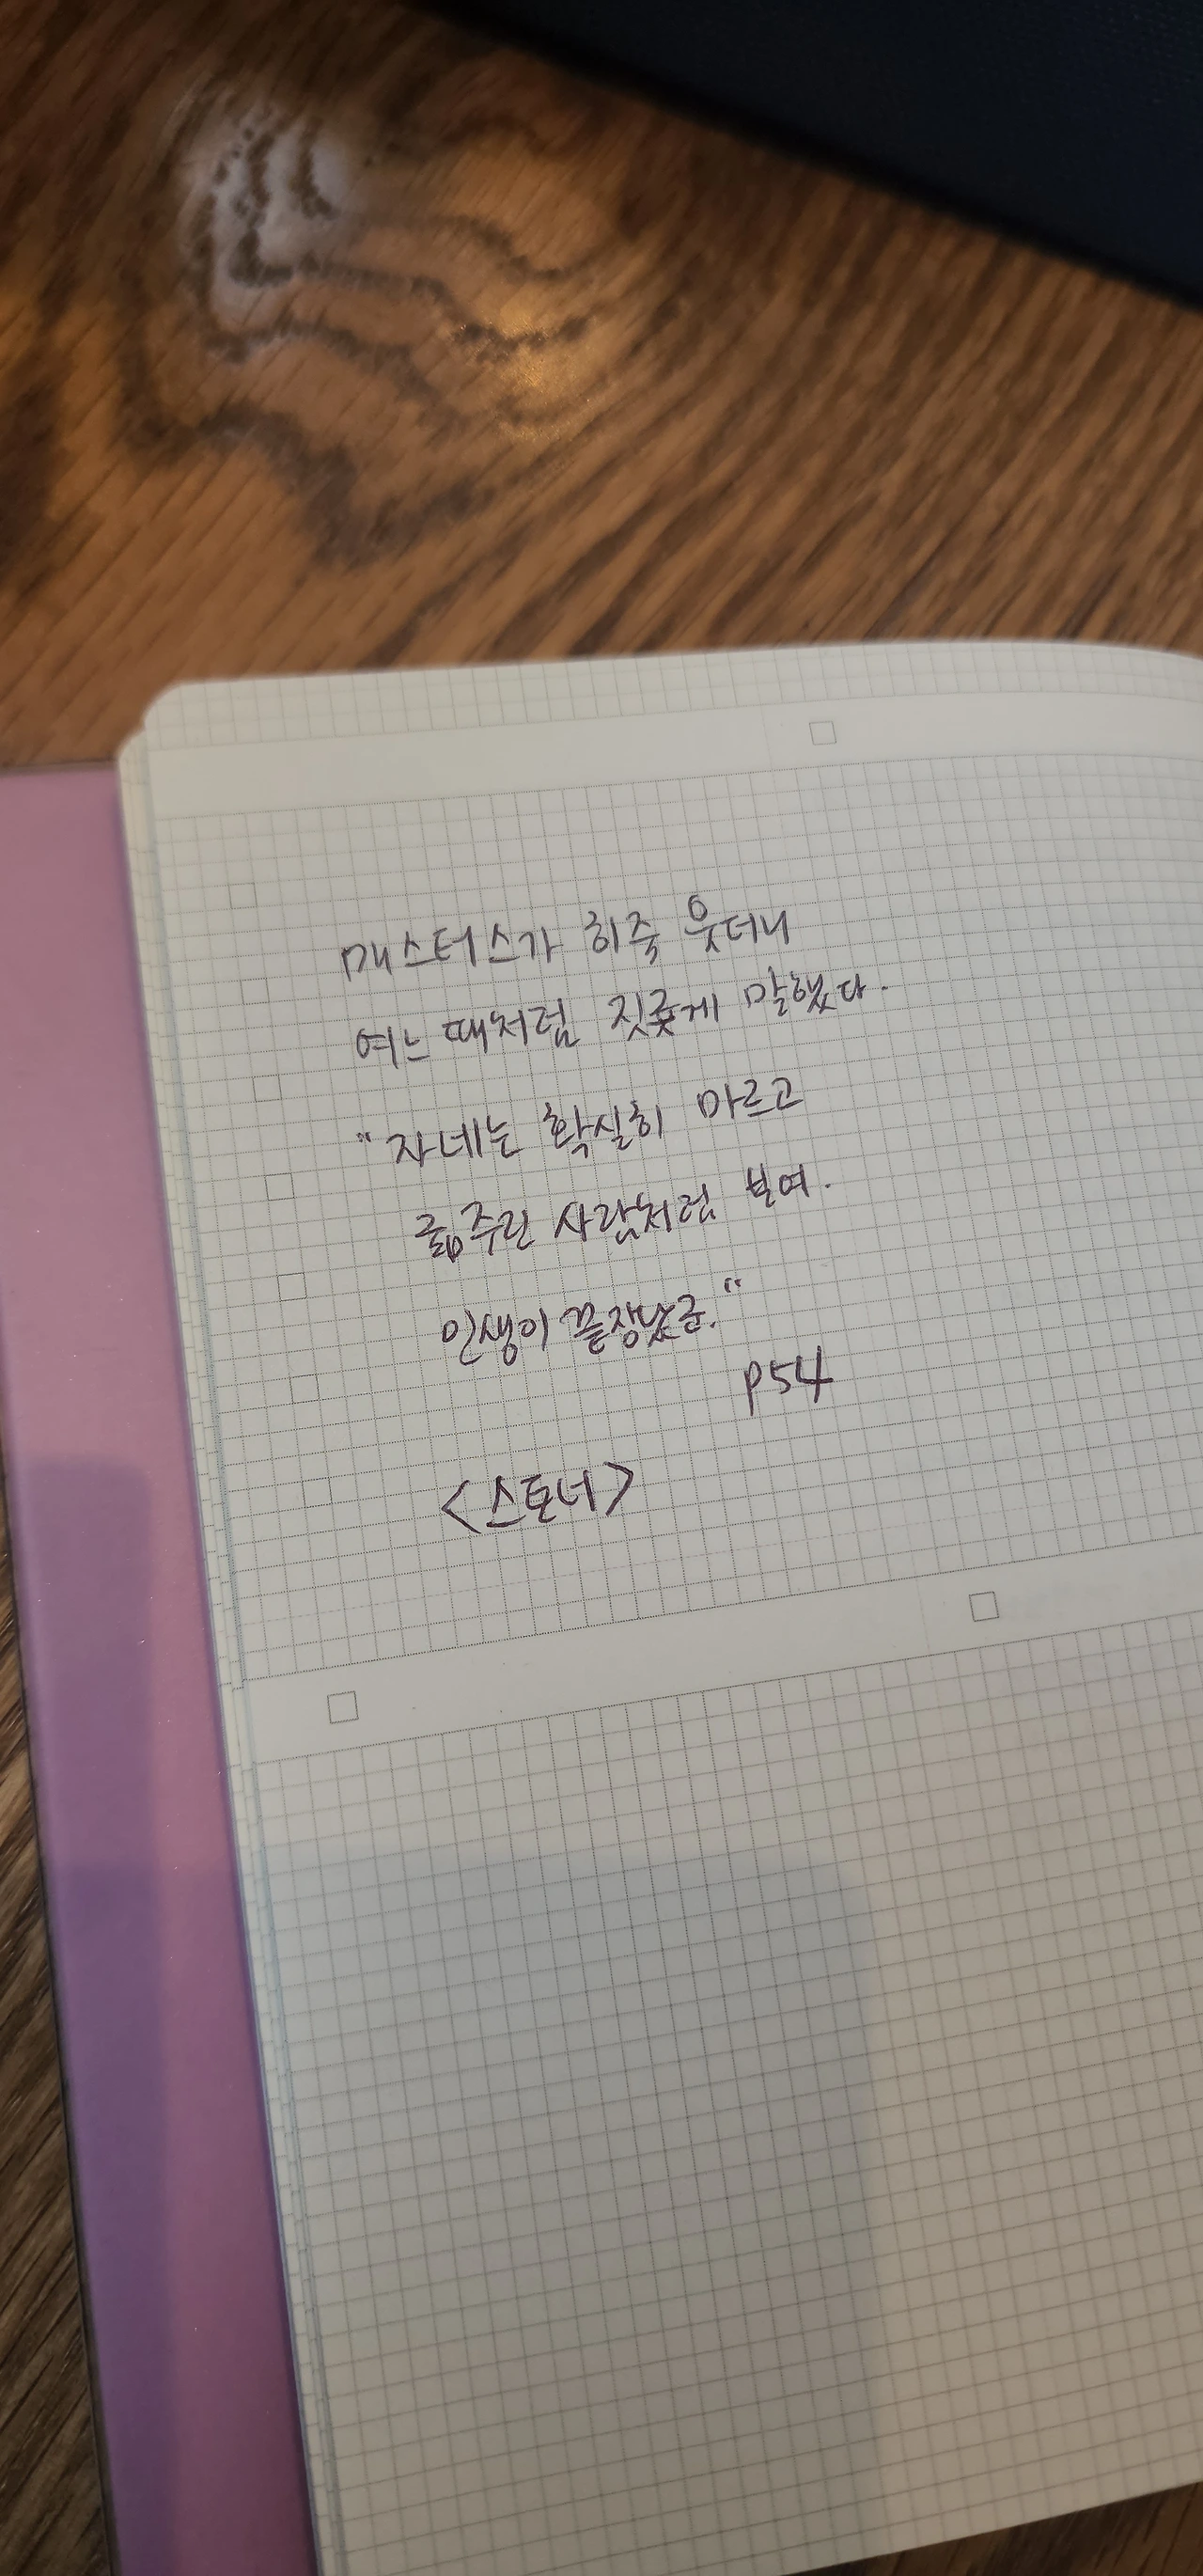 매스터스가 히죽 웃더니
여느때처럼 짓궂게 말했다.
"자네는 확실히 마르고
굶주린 사람처럼 보여.
인생이 끝장났군."
p54
<스토너>